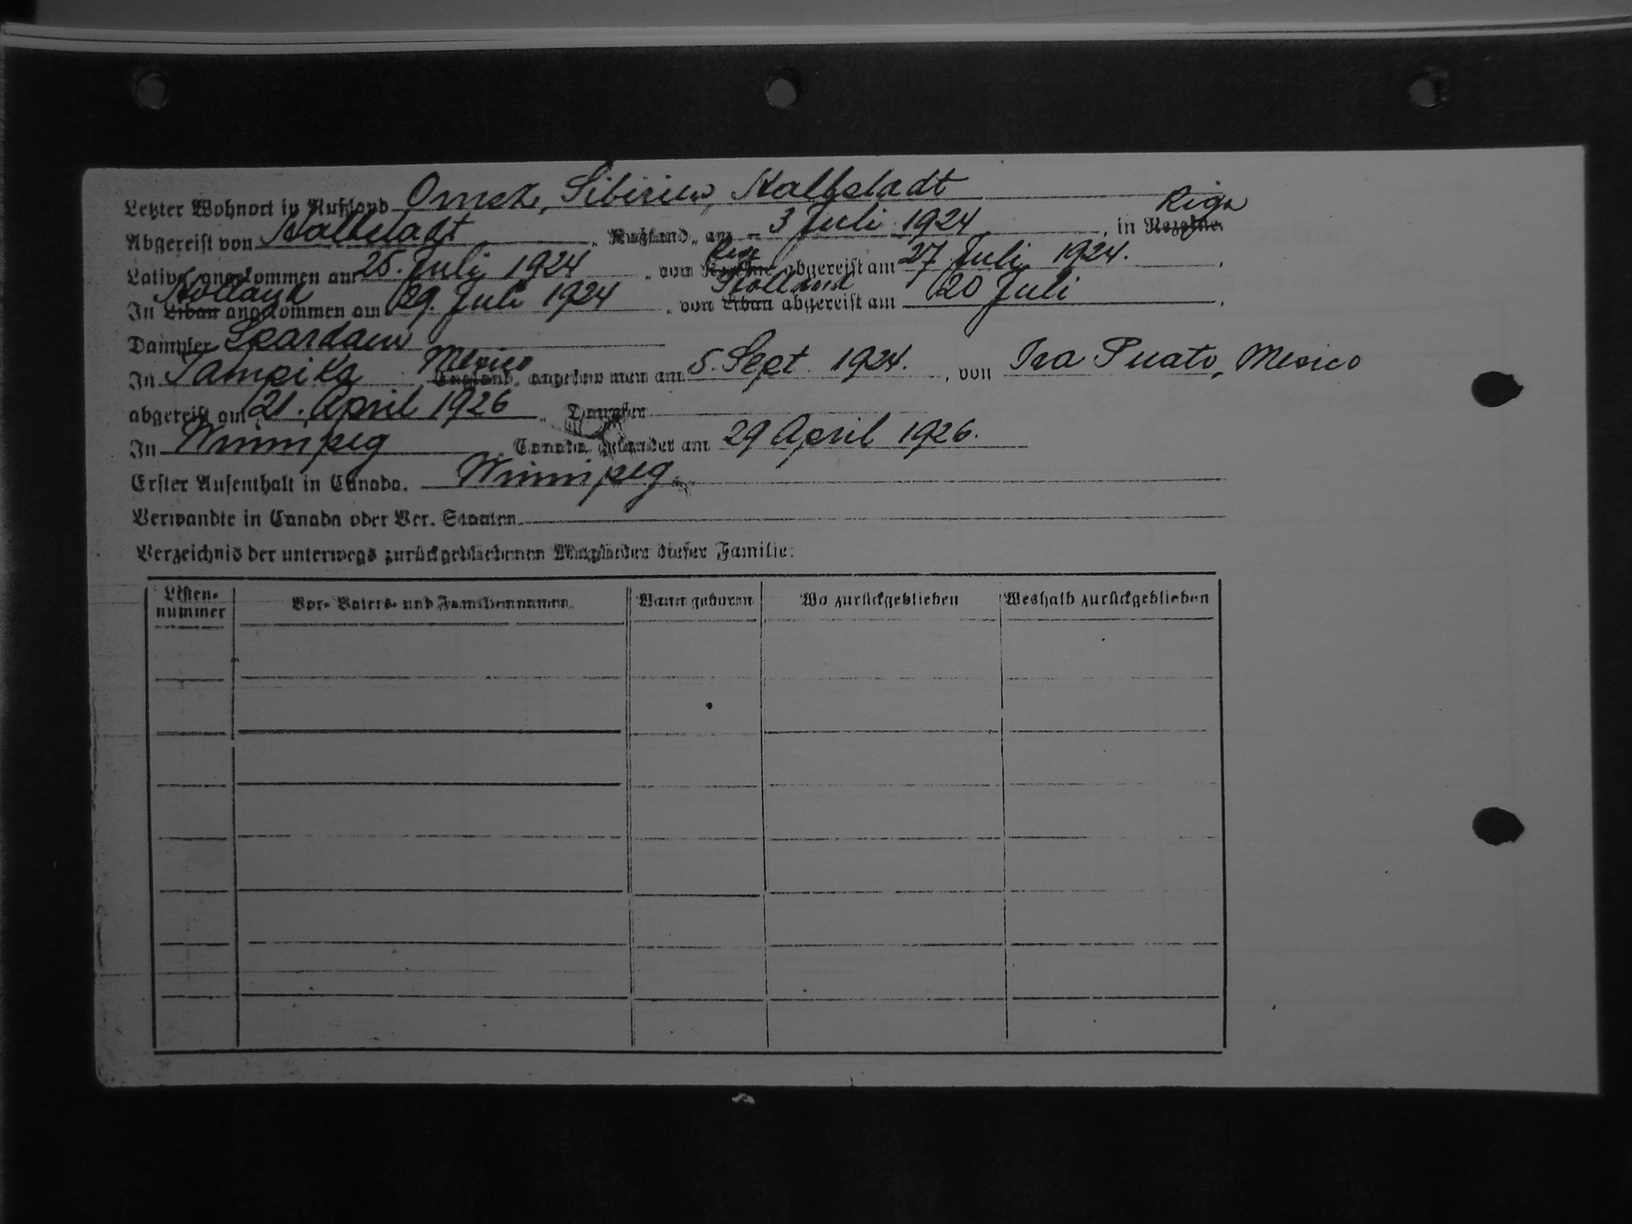 Letzter Wohnort in Rußland Omsk, Sibirien, Halbstadt
Riga
Abgereist von Halbstadt, Rußland, am 3 Juli 1924, in Rezekne
Riga
Lativa angekommen am 25. Juli 1924, von Rezekne abgereist am 27 Juli 1924.,
Holland Holland
In Libau angekommen am 29. Juli 1924, von Libau abgereist am 20 Juli,
Dampfer Spardam
Mexico
In Tampika England, angekommen am 5. Sept. 1924., von Ira Puato, Mexico
abgereist am 21. April 1926, Dampfer
In Winnipeg, Canada, gelandet am 29 April 1926.
Erster Aufenthalt in Canada. Winnipeg.
Verwandte in Canada oder Ver. Staaten
Verzeichnis der unterwegs zurückgebliebenen Mitglieder dieser Familie:
Listen-nummer Vor- Vaters- und Familiennamen. Wann geboren Wo zurückgeblieben Weshalb zurückgeblieben